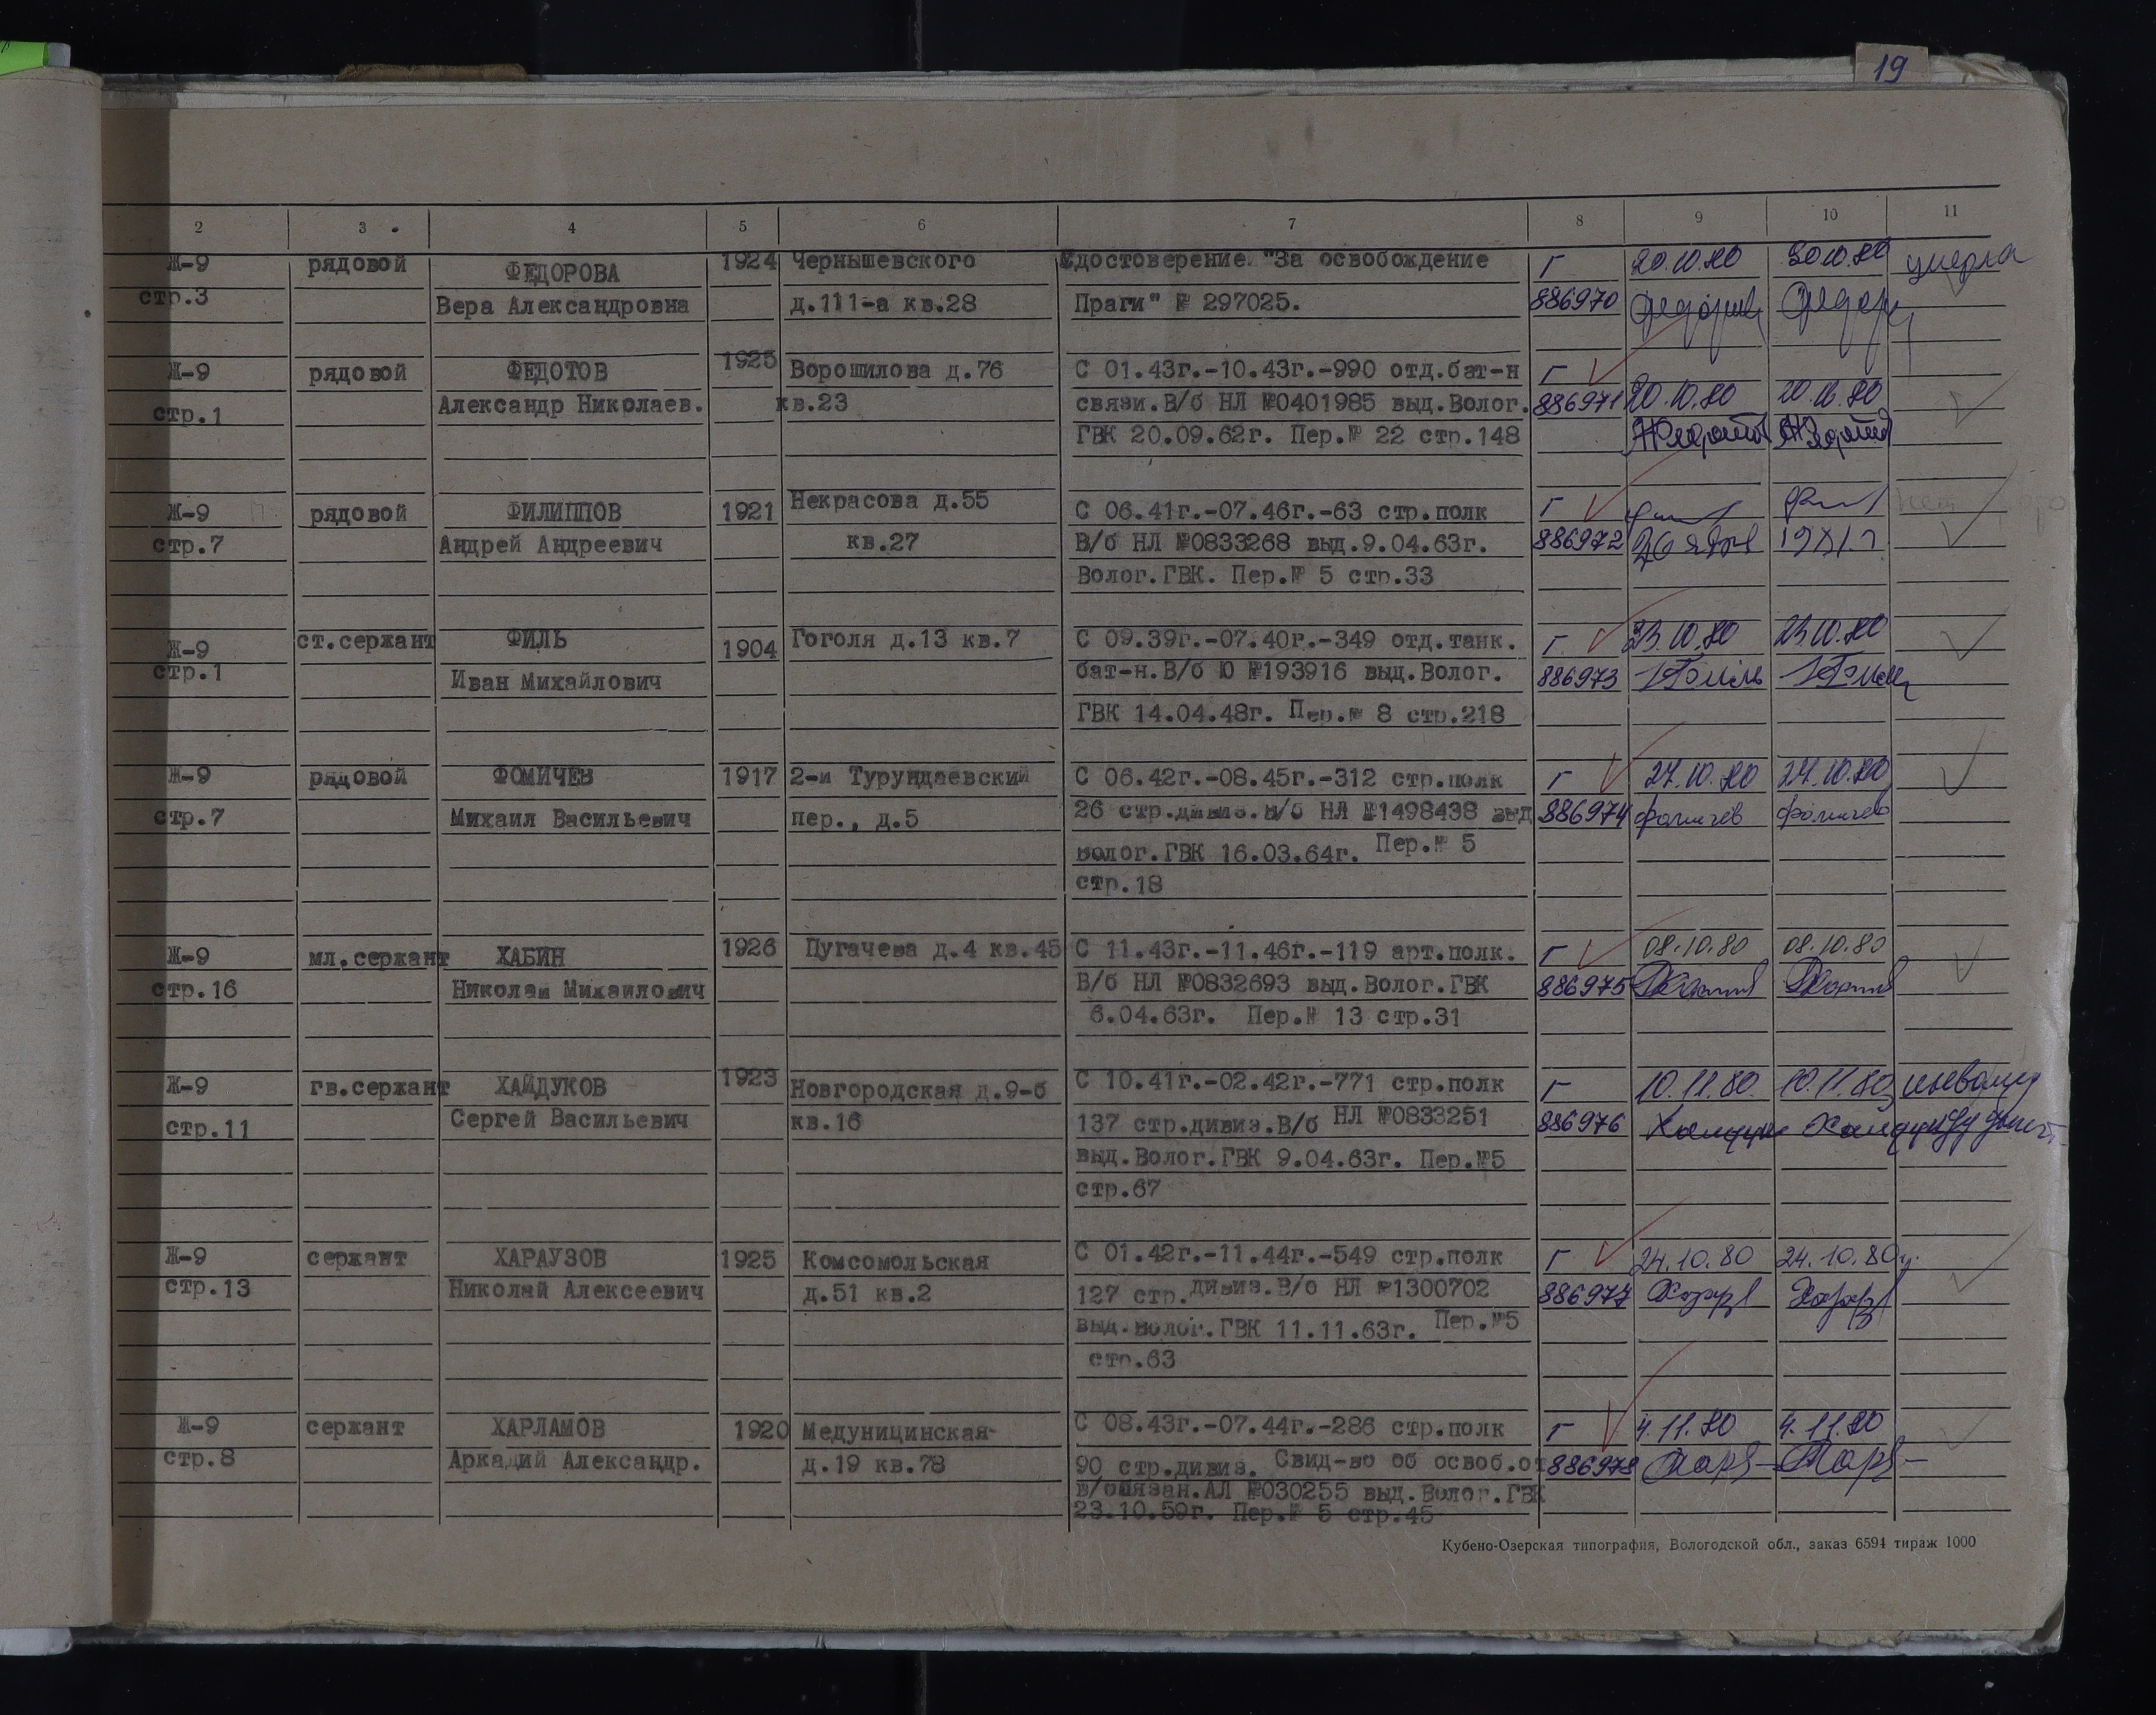 19
2 3 4 5 6 7 8 9 10 11
Ж-9 рядовой ФЕДОРОВА 1924 Чернышевского Удостоверение "За освобождение Г 20.10.80 30.10.80 умерла
стр.3 Вера Александровна д.111-а кв.28 Праги" № 297025. 886970
Ж-9 рядовой ФЕДОТОВ 1925 Ворошилова д.76 С 01.43г.-10.43г.-990 отд.бат-н Г
стр.1 Александр Николаев. кв.23 связи.В/б НЛ №0401985 выд.Волог. 886971 20.10.80 20.10.80
ГВК 20.09.62г. Пер.№ 22 стр.148
Ж-9 рядовой ФИЛИППОВ 1921 Некрасова д.55 С 06.41г.-07.46г.-63 стр.полк Г
стр.7 Андрей Андреевич кв.27 В/б НЛ №0833268 выд.9.04.63г. 886972
Волог.ГВК. Пер.№ 5 стр.33
Ж-9 ст.сержант ФИЛЬ 1904 Гоголя д.13 кв.7 С 09.39г.-07.40г.-349 отд.танк. Г 23.10.80 23.10.80
стр.1 Иван Михайлович бат-н.В/б Ю №193916 выд.Волог. 886973
ГВК 14.04.48г. Пер.№ 8 стр.218
Ж-9 рядовой ФОМИЧЕВ 1917 2-й Турундаевский С 06.42г.-08.45г.-312 стр.полк Г 27.10.80
стр.7 Михаил Васильевич пер., д.5 26 стр.дивиз.В/б НЛ №1498438 выд 886974 Фомичев Фомичев
Волог.ГВК 16.03.64г. Пер.№ 5
стр.18
Ж-9 мл.сержант ХАБИН 1926 Пугачева д.4 кв.45 С 11.43г.-11.46г.-119 арт.полк. Г 08.10.80 08.10.80
стр.16 Николай Михайлович В/б НЛ №0832693 выд.Волог.ГВК 886975
6.04.63г. Пер.№ 13 стр.31
Ж-9 гв.сержант ХАЙДУКОВ 1923 Новгородская д.9-б С 10.41г.-02.42г.-771 стр.полк Г 10.11.80. 10.11.80
стр.11 Сергей Васильевич кв.16 137 стр.дивиз.В/б НЛ №0833251 886976
выд.Волог.ГВК 9.04.63г. Пер.№5
стр.67
Ж-9 сержант ХАРАУЗОВ 1925 Комсомольская С 01.42г.-11.44г.-549 стр.полк Г 24.10.80 24.10.80
стр.13 Николай Алексеевич д.51 кв.2 127 стр.дивиз.В/б НЛ №1300702 886977
выд.Волог.ГВК 11.11.63г. Пер.№5
стр.63
Ж-9 сержант ХАРЛАМОВ 1920 Медуницинская С 08.43г.-07.44г.-286 стр.полк Г 4.11.80 4.11.80
стр.8 Аркадий Александр. д.19 кв.78 90 стр.дивиз. Свид-во об освоб.от 886978
в/обязан.АЛ №030255 выд.Волог.ГВК
23.10.59г. Пер.№ 5 стр.45
Кубено-Озерская типография, Вологодской обл., заказ 6594 тираж 1000